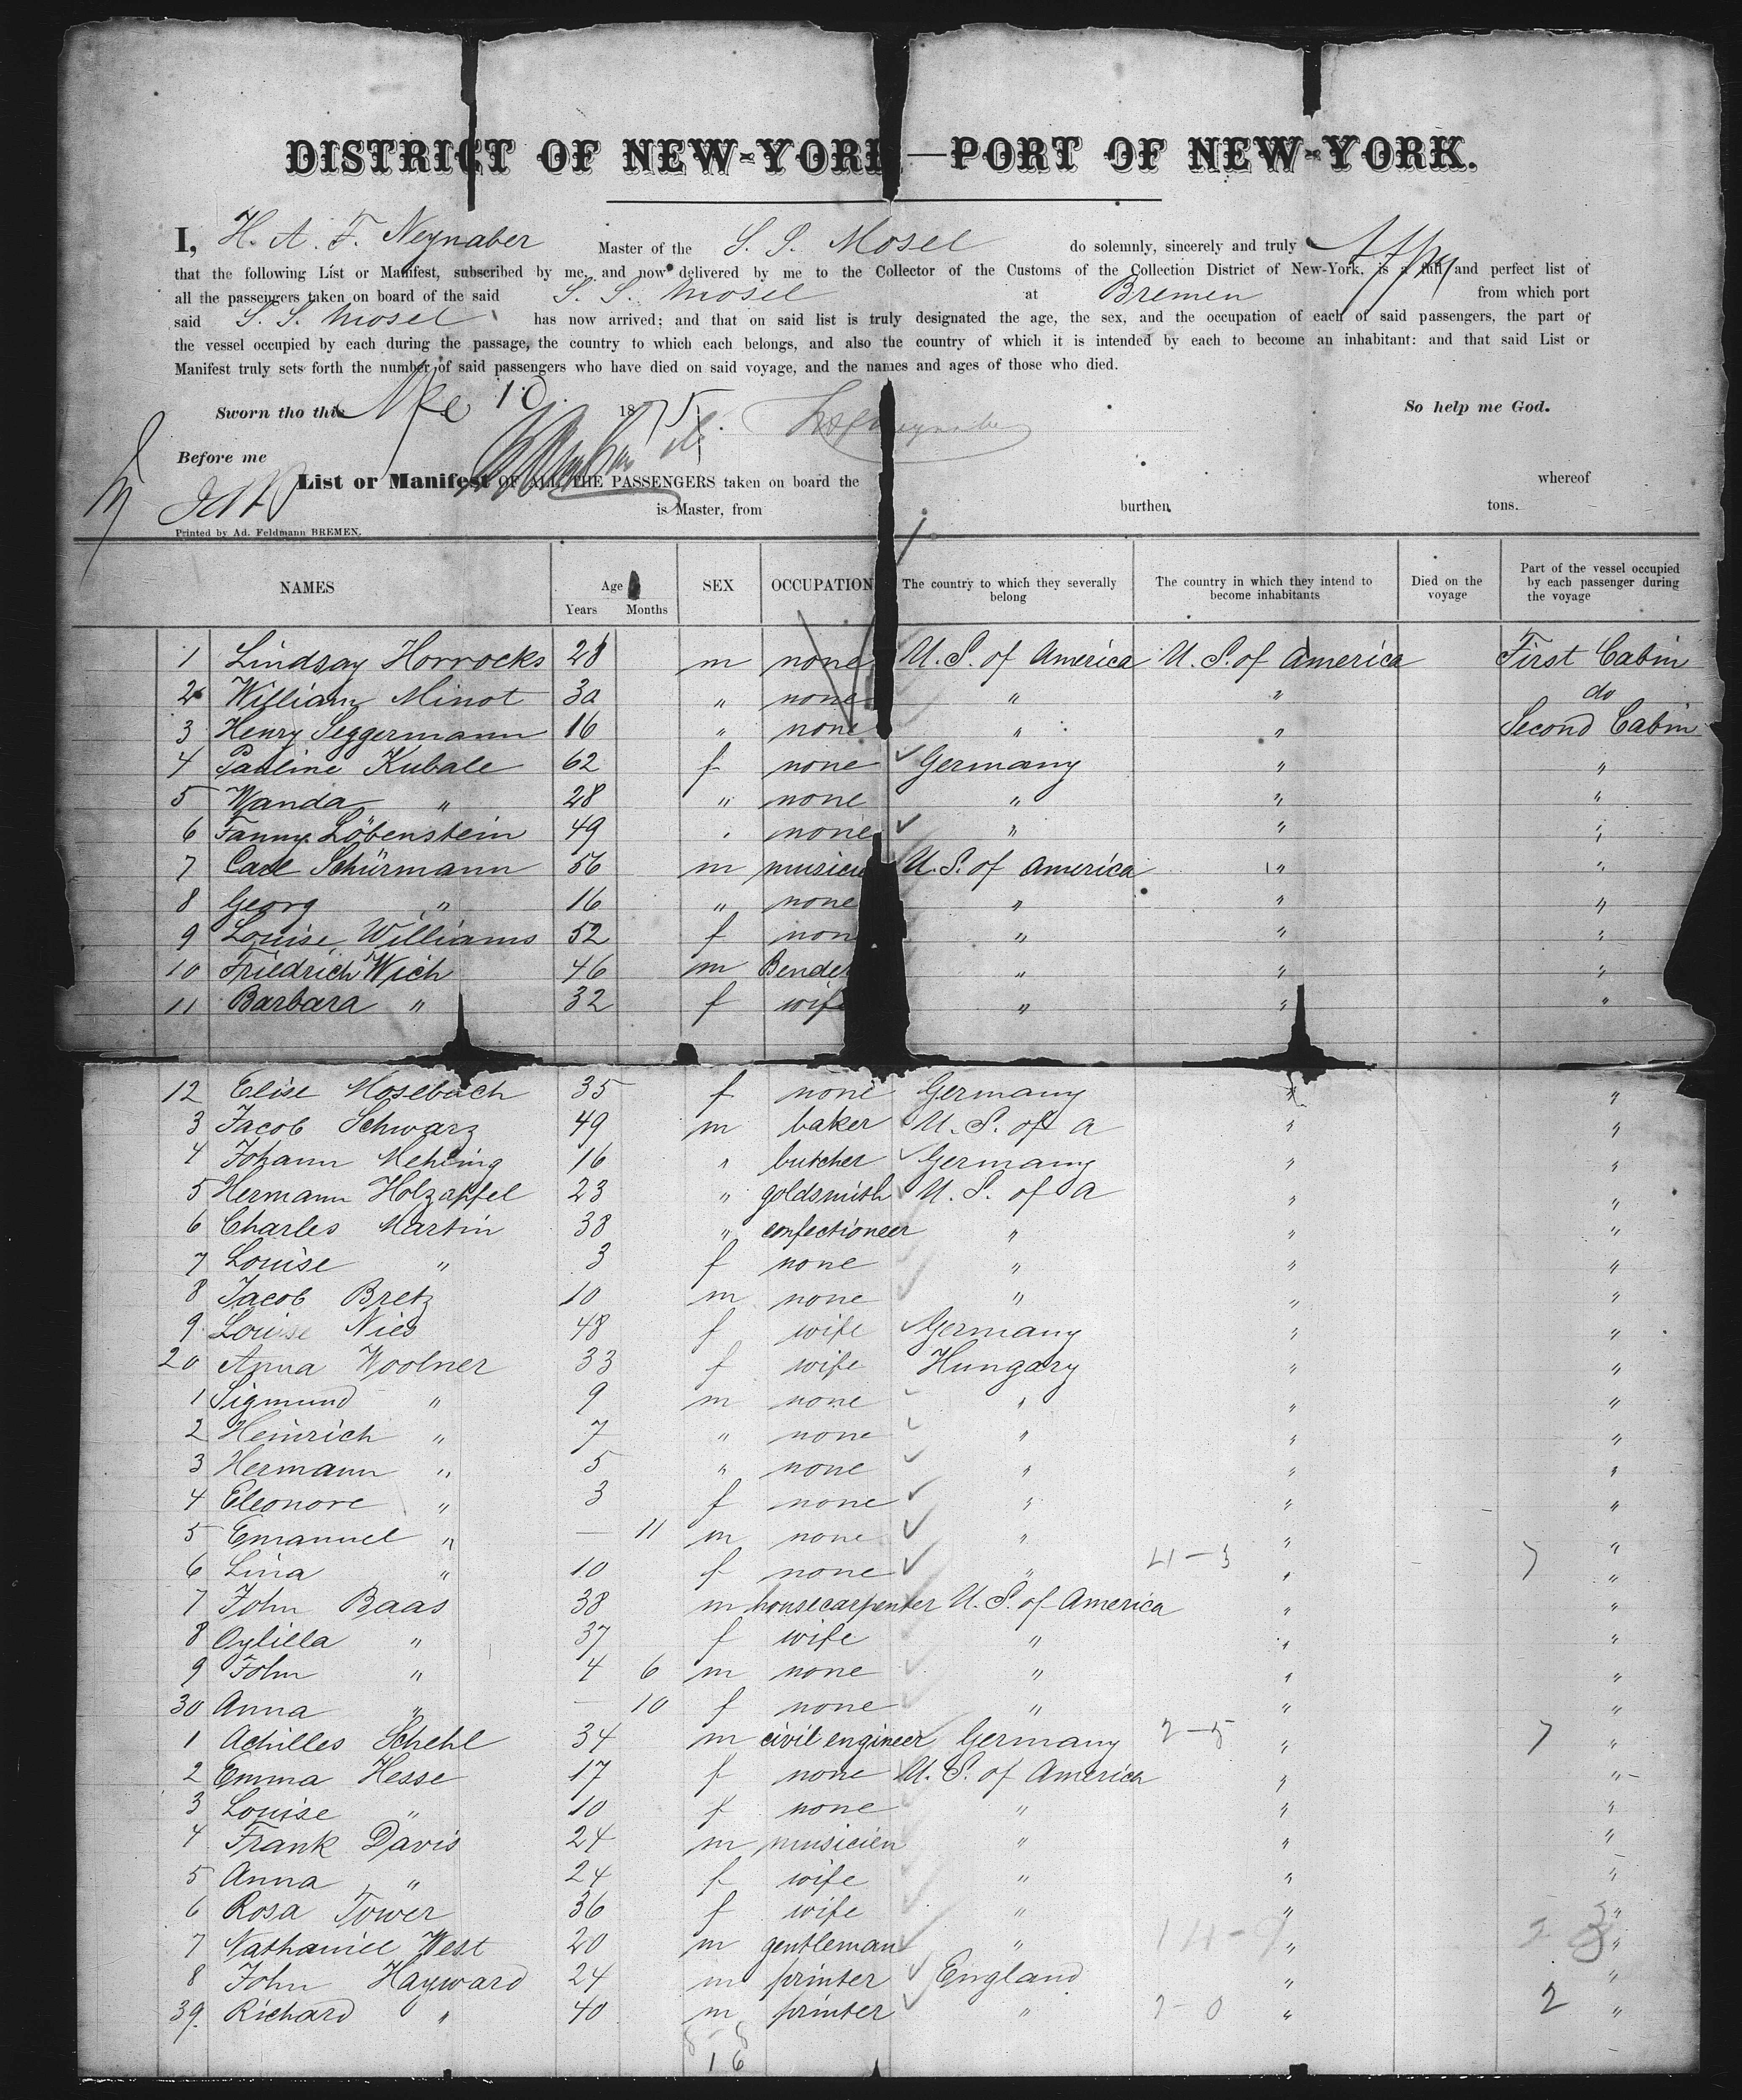 DISTRICT OF NEW-YORK—PORT OF NEW-YORK.
I, H. A. F. Neynaber Master of the S. S. Mosel do solemnly, sincerely and truly
that the following List or Manifest, subscribed by me, and now delivered by me to the Collector of the Customs of the Collection District of New-York, is a full and perfect list of
all the passengers taken on board of the said S. S. Mosel at Bremen from which port
said S. S. Mosel has now arrived; and that on said list is truly designated the age, the sex, and the occupation of each of said passengers, the part of
the vessel occupied by each during the passage, the country to which each belongs, and also the country of which it is intended by each to become an inhabitant: and that said List or
Manifest truly sets forth the number of said passengers who have died on said voyage, and the names and ages of those who died.
Sworn tho this 10 1875 So help me God.
Before me
List or Manifest OF ALL THE PASSENGERS taken on board the whereof
is Master, from burthen tons.
Printed by Ad. Feldmann BREMEN.
NAMES Age Years Months SEX OCCUPATION The country to which they severally belong The country in which they intend to become inhabitants Died on the voyage Part of the vessel occupied by each passenger during the voyage
1 Lindsay Horrocks 28 m none U. S. of America U. S. of America First Cabin
2 William Minot 30 " none " " do
3 Henry Seggermann 16 " none " " Second Cabin
4 Pauline Kubale 62 f none Germany " "
5 Wanda " 28 " none " " "
6 Fanny Löbenstein 49 " none " " "
7 Carl Schürmann 56 m musici U. S. of America " "
8 Georg " 16 " none " " "
9 Louise Williams 52 f non " " "
10 Friedrich Wich 46 m Bende " " "
11 Barbara " 32 f wife " " "
12 Elise Mosebach 35 f none Germany " "
3 Jacob Schwarz 49 m baker U. S. of A " "
4 Johann Mehling 16 " butcher Germany " "
5 Hermann Holzapfel 23 " goldsmith U. S. of A " "
6 Charles Martin 38 " confectioneer " " "
7 Louise " 3 f none " " "
8 Jacob Bretz 10 m none " " "
9 Louise Nies 48 f wife Germany " "
20 Anna Woolner 33 f wife Hungary " "
1 Sigmund " 9 m none " " "
2 Heinrich " 7 " none " " "
3 Hermann " 5 " none " " "
4 Eleonore " 3 f none " " "
5 Emanuel " — 11 m none " " "
6 Lina " 10 f none " 4-3 " 7 "
7 John Baas 38 m housecarpenter U. S. of America " "
8 Cylilla " 37 f wife " " "
9 John " 4 6 m none " " "
30 Anna " — 10 f none " " "
1 Achilles Schehl 34 m civil engineer Germany 2-5 " 7 "
2 Emma Hesse 17 f none U. S. of America " "
3 Louise " 10 f none " " "
4 Frank Davis 24 m musicien " " "
5 Anna " 24 f wife " " "
6 Rosa Tower 36 f wife " " "
7 Nathaniel West 20 m gentleman " " "
8 John Hayward 24 m printer England " "
39. Richard " 40 m printer " 2-0 " 2 "
16